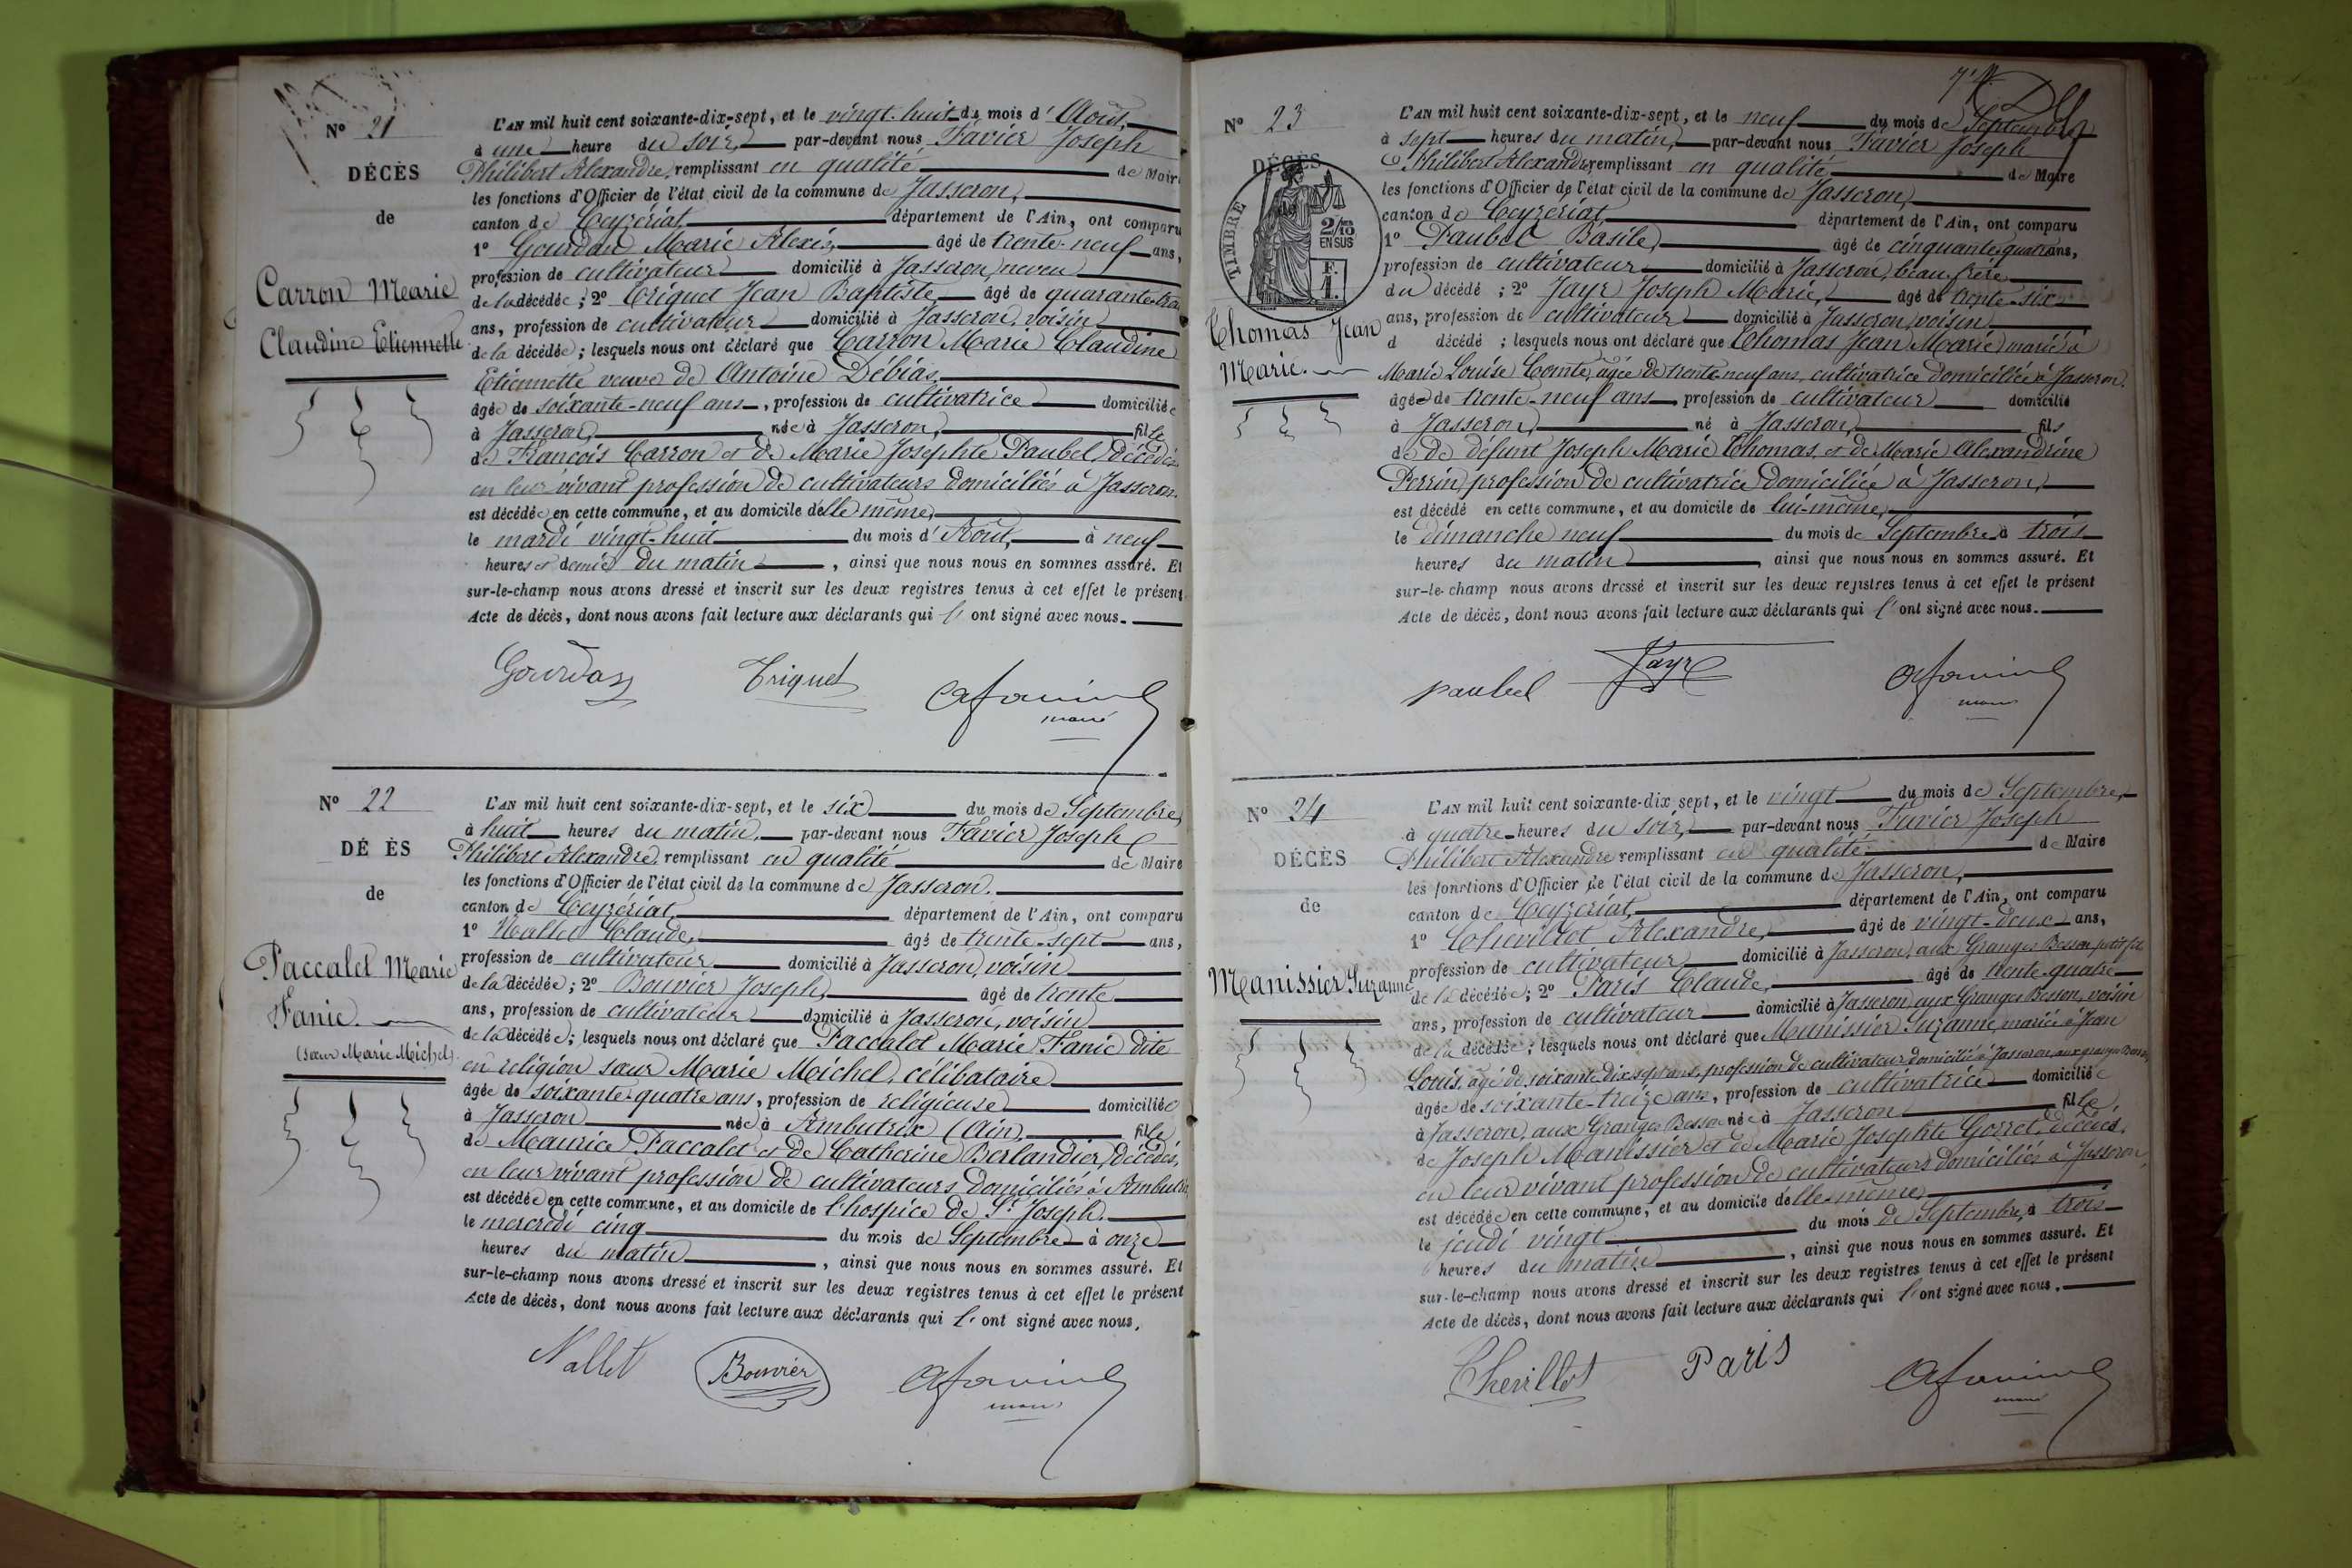 N° 21
DÉCÈS
de
Carron Marie
Claudine Etiennette
L'AN mil huit cent soixante-dix-sept, et le vingt-huit du mois d'Août,
à une heure du soir, par-devant nous Favier Joseph
Philibert Alexandre, remplissant en qualité de Maire
les fonctions d'Officier de l'état civil de la commune de Jasseron,
canton de Ceyzériat, département de l'Ain, ont comparu
1° Gourdan Marie Alexis, âgé de trente-neuf ans,
profession de cultivateur domicilié à Jasseron, neveu
de la décédée ; 2° Triquet Jean Baptiste, âgé de quarante-trois
ans, profession de cultivateur domicilié à Jasseron, voisin
de la décédée ; lesquels nous ont déclaré que Carron Marie Claudine
Etiennette veuve de Antoine Débias,
âgée de soixante-neuf ans, profession de cultivatrice domiciliée
à Jasseron, née à Jasseron, fille
de François Carron et de Marie Josephte Paubel, décédés
en leur vivant profession de cultivateurs domiciliés à Jasseron.
est décédée en cette commune, et au domicile d'elle même,
le mardi vingt-huit du mois d'Août, à neuf
heures et demie du matin, ainsi que nous nous en sommes assuré. Et
sur-le-champ nous avons dressé et inscrit sur les deux registres tenus à cet effet le présent
Acte de décès, dont nous avons fait lecture aux déclarants qui l'ont signé avec nous.
Gourdan Triquet Afavier
maire
N° 22
DÉ ÈS
de
Paccalet Marie
Fanie.
(sœur Marie Michel)
L'AN mil huit cent soixante-dix-sept, et le six du mois de Septembre,
à huit heures du matin, par-devant nous Favier Joseph
Philibert Alexandre, remplissant en qualité de Maire
les fonctions d'Officier de l'état civil de la commune de Jasseron.
canton de Ceyzériat, département de l'Ain, ont comparu
1° Nallet Claude, âgé de trente-sept ans,
profession de cultivateur domicilié à Jasseron, voisin
de la décédée ; 2° Bouvier Joseph, âgé de trente
ans, profession de cultivateur domicilié à Jasseron, voisin
de la décédée ; lesquels nous ont déclaré que Paccalet Marie Fanie dite
en religion sœur Marie Michel, célibataire
âgée de soixante-quatre ans, profession de religieuse domiciliée
à Jasseron née à Ambutrix (Ain), fille
de Maurice Paccalet et de Catherine Berlandier, décédés,
en leur vivant profession de cultivateurs domiciliés à Ambutrix
est décédée en cette commune, et au domicile de l'hospice de St Joseph.
le mercredi cinq du mois de Septembre à onze
heures du matin, ainsi que nous nous en sommes assuré. Et
sur-le-champ nous avons dressé et inscrit sur les deux registres tenus à cet effet le présent
Acte de décès, dont nous avons fait lecture aux déclarants qui l'ont signé avec nous.
Nallet Bouvier Afavier
maire
N° 23
DÉCÈS
TIMBRE
2/10 EN SUS
F. 1.
Thomas Jean
Marie.
L'AN mil huit cent soixante-dix-sept, et le neuf du mois de Septembre
à sept heures du matin, par-devant nous Favier Joseph
Philibert Alexandre, remplissant en qualité de Maire
les fonctions d'Officier de l'état civil de la commune de Jasseron,
canton de Ceyzériat, département de l'Ain, ont comparu
1° Paubel Basile, âgé de cinquante-quatre ans,
profession de cultivateur domicilié à Jasseron, beau-frère
du décédé ; 2° Jayr Joseph Marie, âgé de trente-six
ans, profession de cultivateur domicilié à Jasseron, voisin
d décédé ; lesquels nous ont déclaré que Thomas Jean Marie, marié à
Marie Louise Comte, âgée de trente-neuf ans, cultivatrice domiciliée à Jasseron.
âgé de trente-neuf ans, profession de cultivateur domicilié
à Jasseron, né à Jasseron, fils
de de défunt Joseph Marie Thomas, et de Marie Alexandrine
Perrin, profession de cultivatrice domiciliée à Jasseron,
est décédé en cette commune, et au domicile de lui-même,
le dimanche neuf du mois de Septembre à trois
heures du matin, ainsi que nous nous en sommes assuré. Et
sur-le-champ nous avons dressé et inscrit sur les deux registres tenus à cet effet le présent
Acte de décès, dont nous avons fait lecture aux déclarants qui l'ont signé avec nous.
paubel Jayr Afavier
maire
N° 24
DÉCÈS
de
Manissier Suzanne
L'AN mil huit cent soixante-dix sept, et le vingt du mois de Septembre,
à quatre heures du soir, par-devant nous Favier Joseph
Philibert Alexandre remplissant en qualité de Maire
les fonctions d'Officier de l'état civil de la commune de Jasseron,
canton de Ceyzériat, département de l'Ain, ont comparu
1° Chevillot Alexandre, âgé de vingt-deux ans,
profession de cultivateur domicilié à Jasseron, aux Granges Besson, petit fils
de la décédée ; 2° Paris Claude, âgé de trente-quatre
ans, profession de cultivateur domicilié à Jasseron, aux Granges Besson, voisin
de la décédée ; lesquels nous ont déclaré que Manissier Suzanne, mariée à Jean
Louis, âgé de soixante dix sept ans, profession de cultivateur domicilié à Jasseron, aux granges Besson,
âgée de soixante-treize ans, profession de cultivatrice domiciliée
à Jasseron, aux Granges Besson née à Jasseron fille
de Joseph Manissier et de Marie Josephte Gorrel, décédés,
en leur vivant profession de cultivateurs domiciliés à Jasseron,
est décédée en cette commune, et au domicile d'elle même
le jeudi vingt du mois de Septembre, à trois
heures du matin, ainsi que nous nous en sommes assuré. Et
sur-le-champ nous avons dressé et inscrit sur les deux registres tenus à cet effet le présent
Acte de décès, dont nous avons fait lecture aux déclarants qui l'ont signé avec nous.
Chevillot Paris Afavier
maire